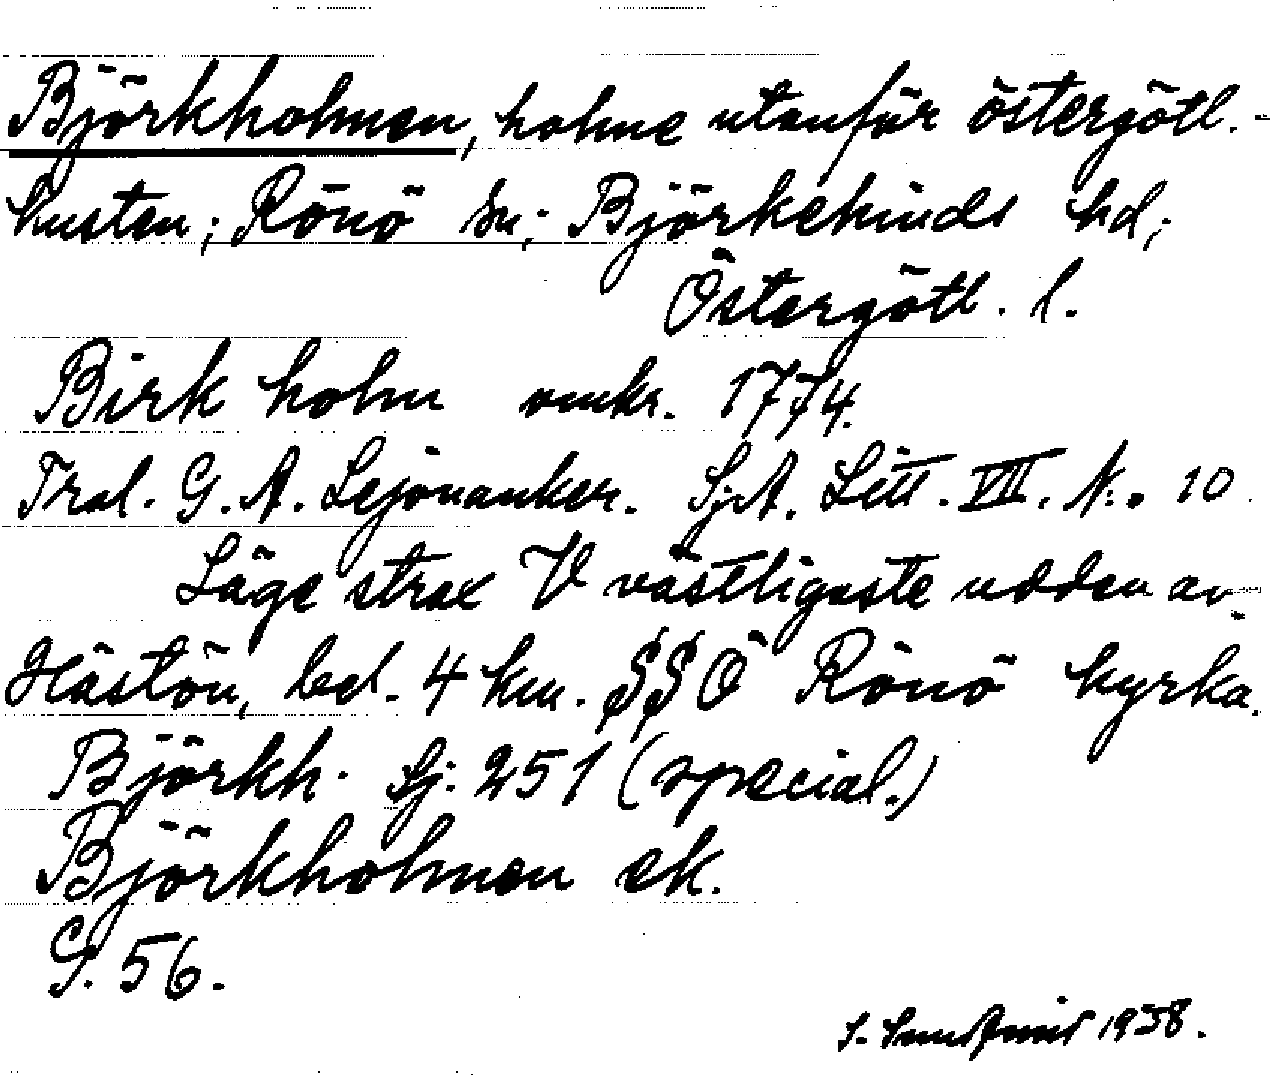 Björkholmen, holme utanför östergötl.-
kusten; Rönö sn; Björkekinds hd;
Östergötl. l.
Birkholm omkr. 1774.
Tral. G. A. Lejonanker. Sj.A. Litt. VII. N:. 10.
Läge strax V västligaste udden av
Hästön, bel. 4 km. SSO Rönö kyrka.
Björkh. Sj. 251 (special.)
Björkholmen ek.
G. 56.
S. 1938.